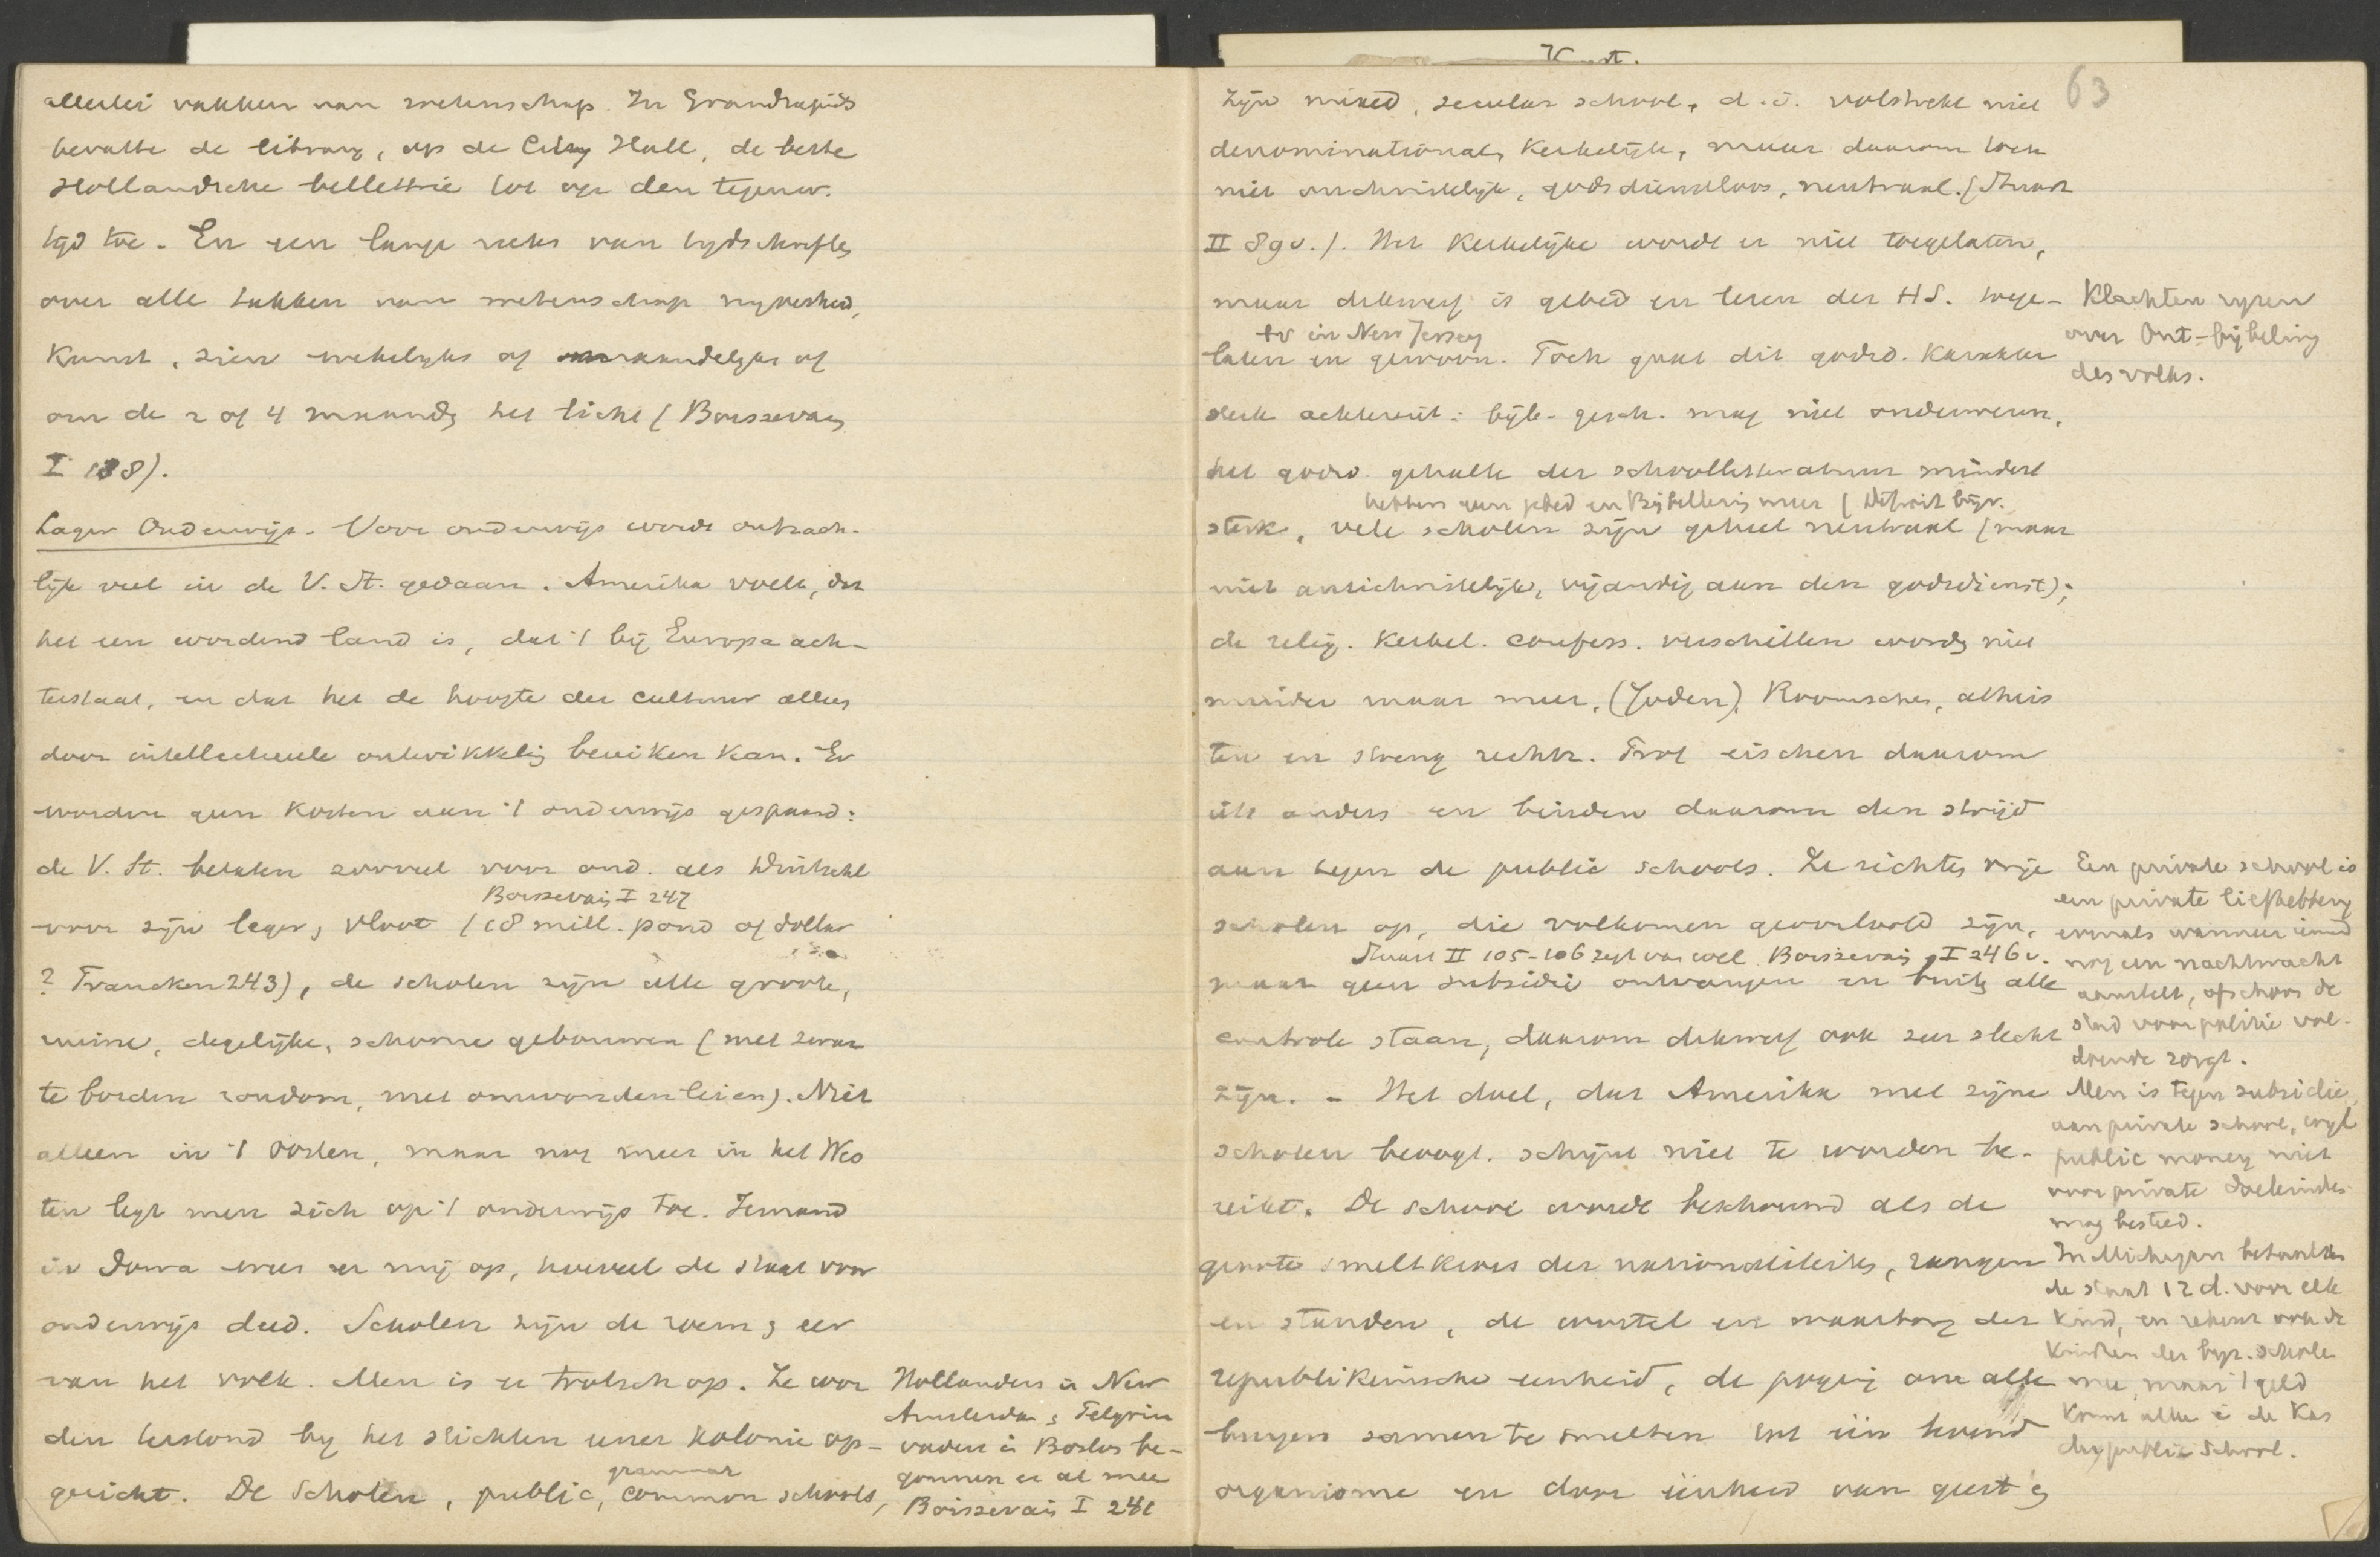 allerlei vakken van wetenschap. In Grandrapids
bevatte de library, op de City Hall, de beste
Hollandsche bellettrie tot op den tegenw.
tijd toe. En een lange reeks van tydschriften
over alle takken van wetenschap nyverheid,
Kunst, zien wekelyks of maandelyks of
om de 2 of 4 maanden het licht (Boissevain
I 188).
Lager Onderwijs. Voor onderwijs wordt ontzach-
lijk veel in de V. St. gedaan. Amerika voelt, dat
het een wordend land is, dat 't bij Europa ach-
terstaat, en dat het de hoogte der cultuur alleen
door intellectueele ontwikkeling bereiken kan. Er
worden geen kosten aan 't onderwijs gespaard:
de V. St. betalen zooveel voor ond. als Duitschl
Boissevain I 247
voor zijn leger, vloot (18 mill. pond of dollar
? Francken 243), de scholen zijn alle groote,
ruime, degelijke, schoone gebouwen (met zwar
te borden rondom, met omwonden leien). Niet
alleen in 't Oosten, maar nog meer in het Wes
ten legt men zich op 't onderwijs toe. Iemand
in Iowa wees er mij op, hoeveel de staat voor
onderwijs deed. Scholen zijn de roem & eer
van het volk. Men is er trotsch op. Ze wor
den terstond by het stichten eener kolonie op-
gericht. De Scholen, public, common schools,
grammar
Hollanders in New
Amsterdam & Pelgrim
vaders in Boston be-
gonnen er al mee
Boissevain I 241
Kunst.
63
zijn mixed, secular school, d. i. volstrekt niet
denominational, Kerkelijk, maar daarom toch
niet onchristelijk, godsdienstloos, neutraal. (Stuart
II 89v.). Het Kerkelijke wordt er niet toegelaten,
maar dikwerf is gebed en lezen der H S. toege-
bv in New Jersey
laten en gewoon. Toch gaat dit godsd. karakter
sterk achteruit: bijb. gesch. mag niet onderwezen,
het godsd. gehalte der schoollitteratuur mindert
hebben geen gebed en Bijbellezing meer (Detroit bijv.
sterk, vele scholen zijn geheel neutraal (maar
niet antichristelijk, vijandig aan den godsdienst);
de relig. Kerkel. confess. verschillen worden niet
minder maar meer, (Joden), Roomschen, atheis
ten en streng rechtz. Prot eischen daarom
iets anders en binden daarom den strijd
aan tegen de public schools. Ze richten vrije
scholen op, die volkomen geoorloofd zijn,
Stuart II 105-106 zegt van wel Boissevain, I 246v.
maar geen subsidie ontvangen en buiten alle
controle staan, daarom dikwerf ook zeer slecht
zijn. - Het doel, dat Amerika met zijne
scholen beoogt. schijnt niet te worden be-
reikt. De school wordt beschouwd als de
groote smeltkroes der nationaliteiten, rangen
en standen, de wortel en waarborg der
republikeinsche eenheid, de poging om alle
burgers samen te smelten tot één hoend
organisme en door éénheid van geest &
Klachten rijzen
over Ont-bijbeling
des volks.
Een private school is
een private liefhebbery
evenals wanneer iemd
nog een nachtwacht
aanstelt, ofschoon de
stad voor politie vol-
doende zorgt.
Men is tegen subsidie
aan private school, wyl
public money niet
voor private doeleinden
mag besteed.
In Michigan betaalt
de staat 12 d. voor elk
kind, en rekent ook de
kinderen der byz. scholen
mee, maar 't geld
komt alleen i de kas
der public School.